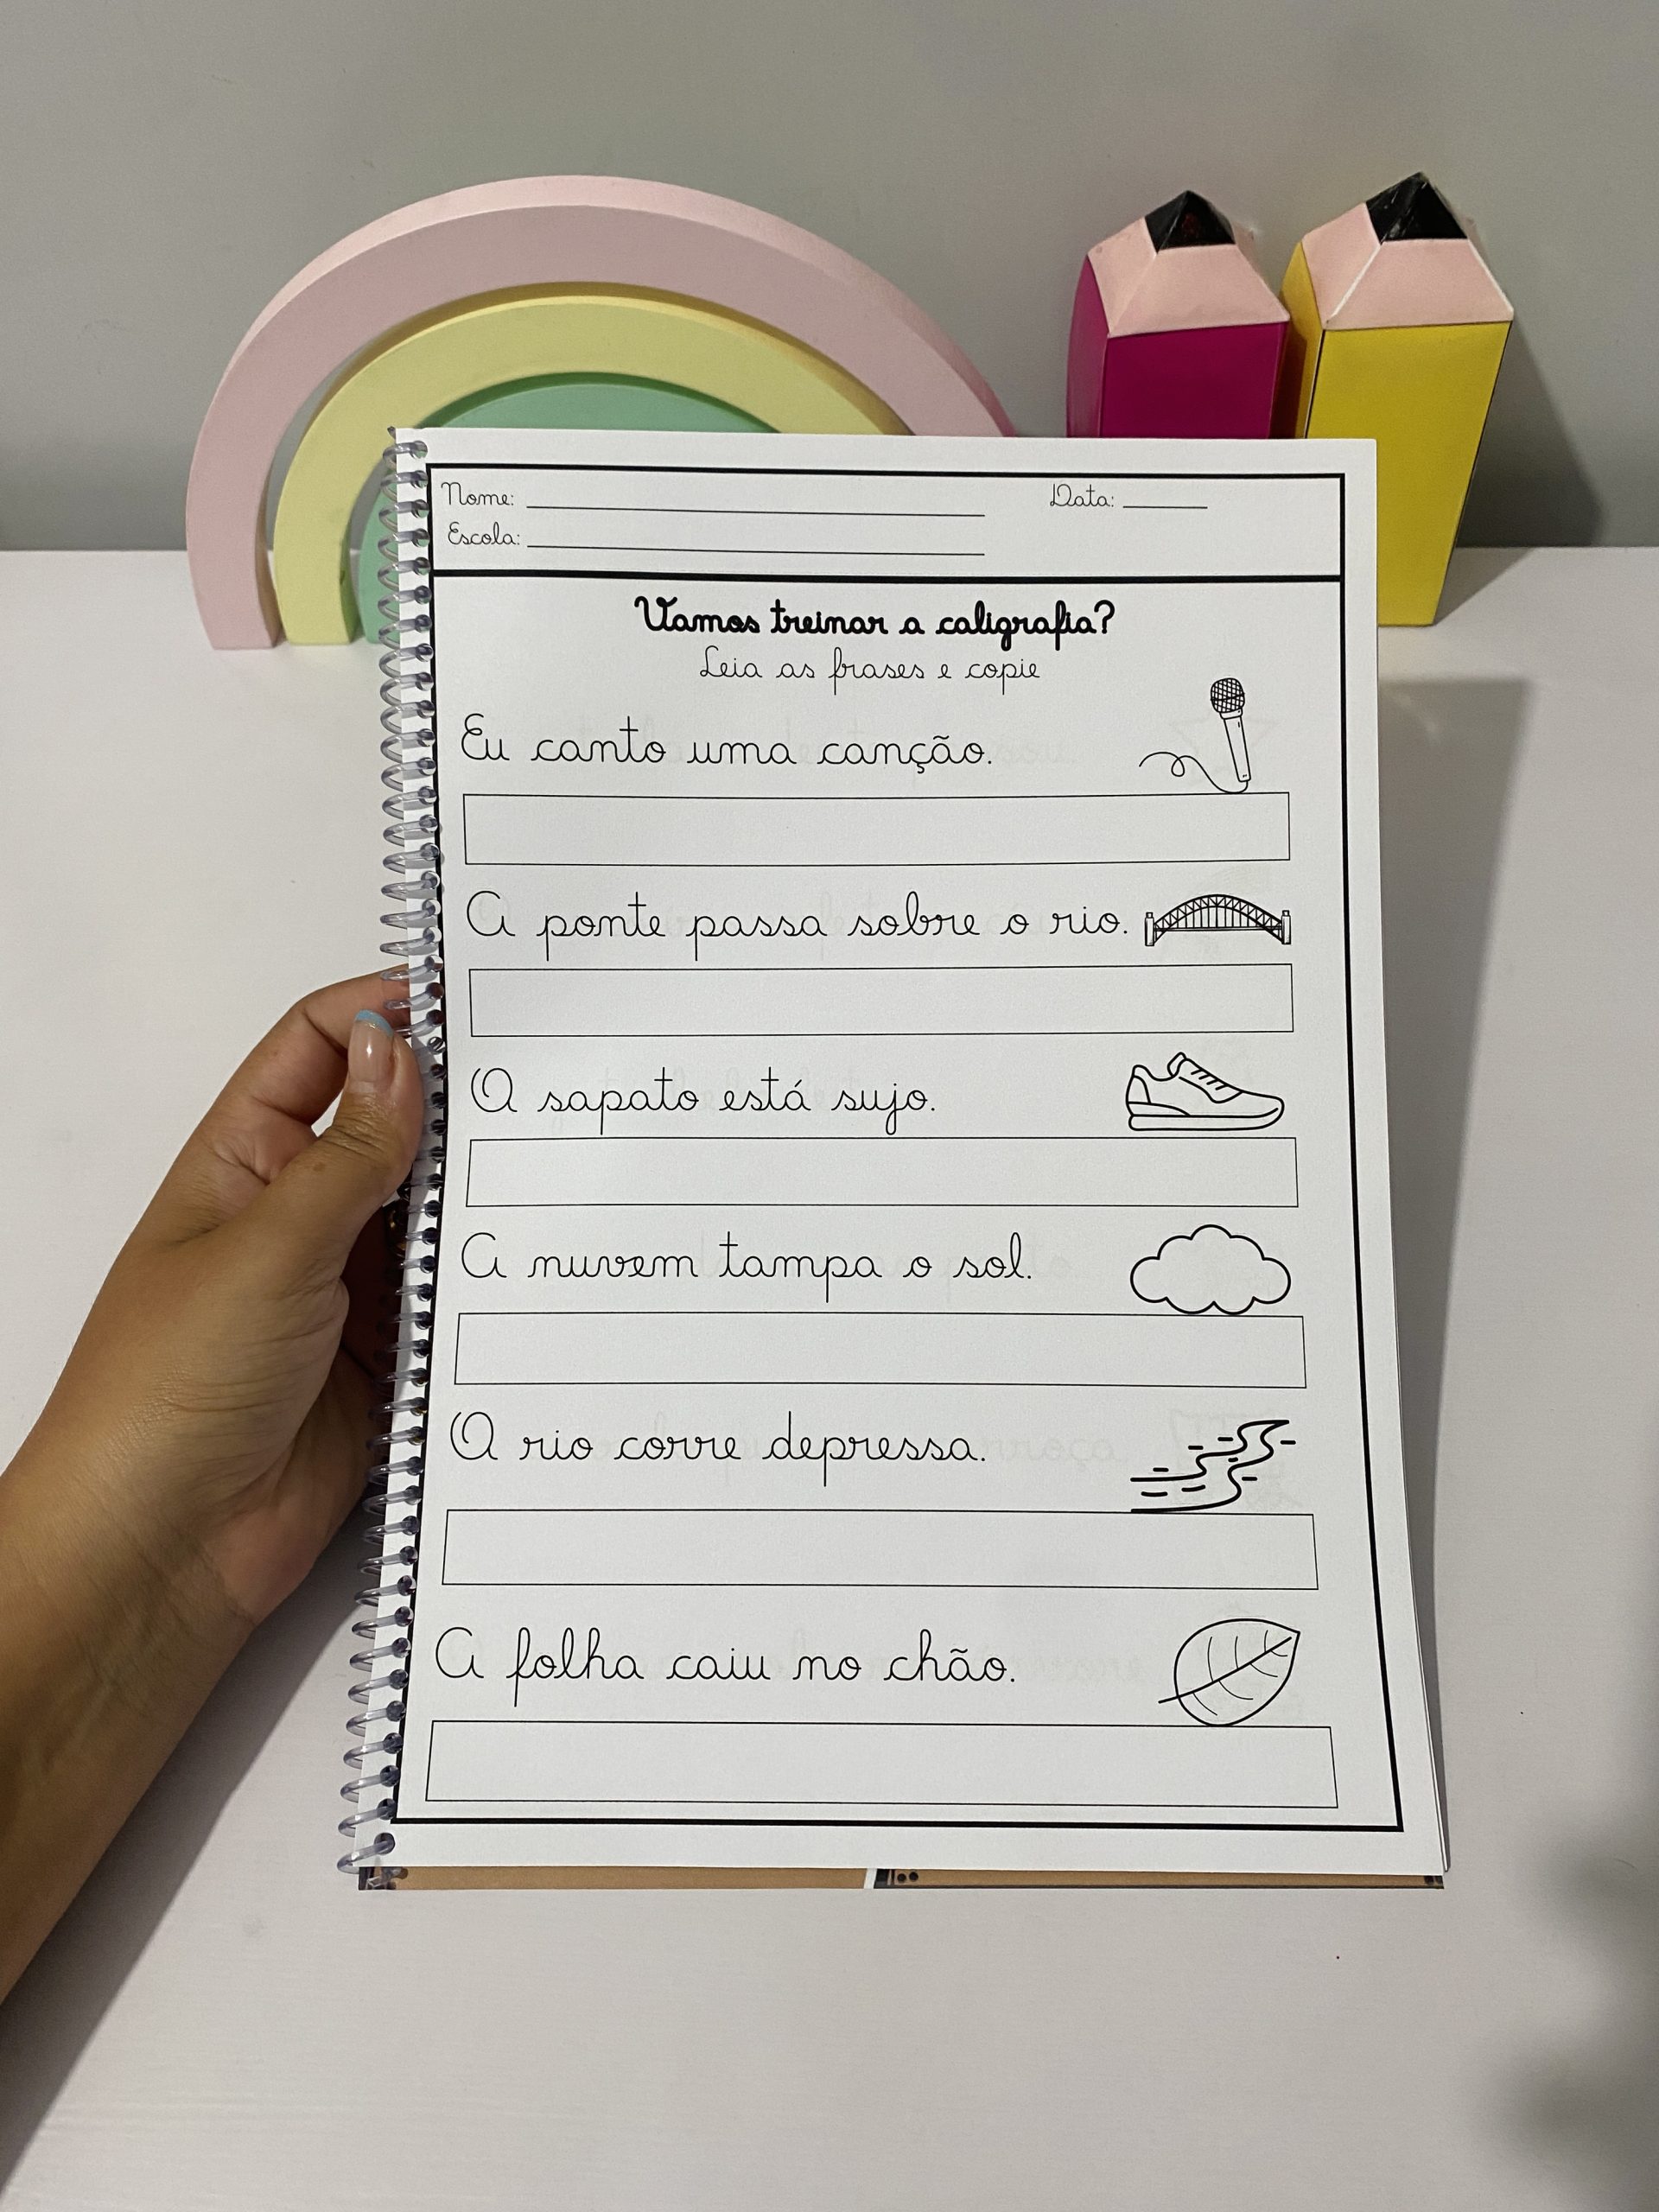 Nome: Data:
Escola:
Vamos treinar a caligrafia?
Leia as frases e copie
Eu canto uma canção.
A ponte passa sobre o rio.
O sapato está sujo.
A nuvem tampa o sol.
O rio corre depressa.
A folha caiu no chão.